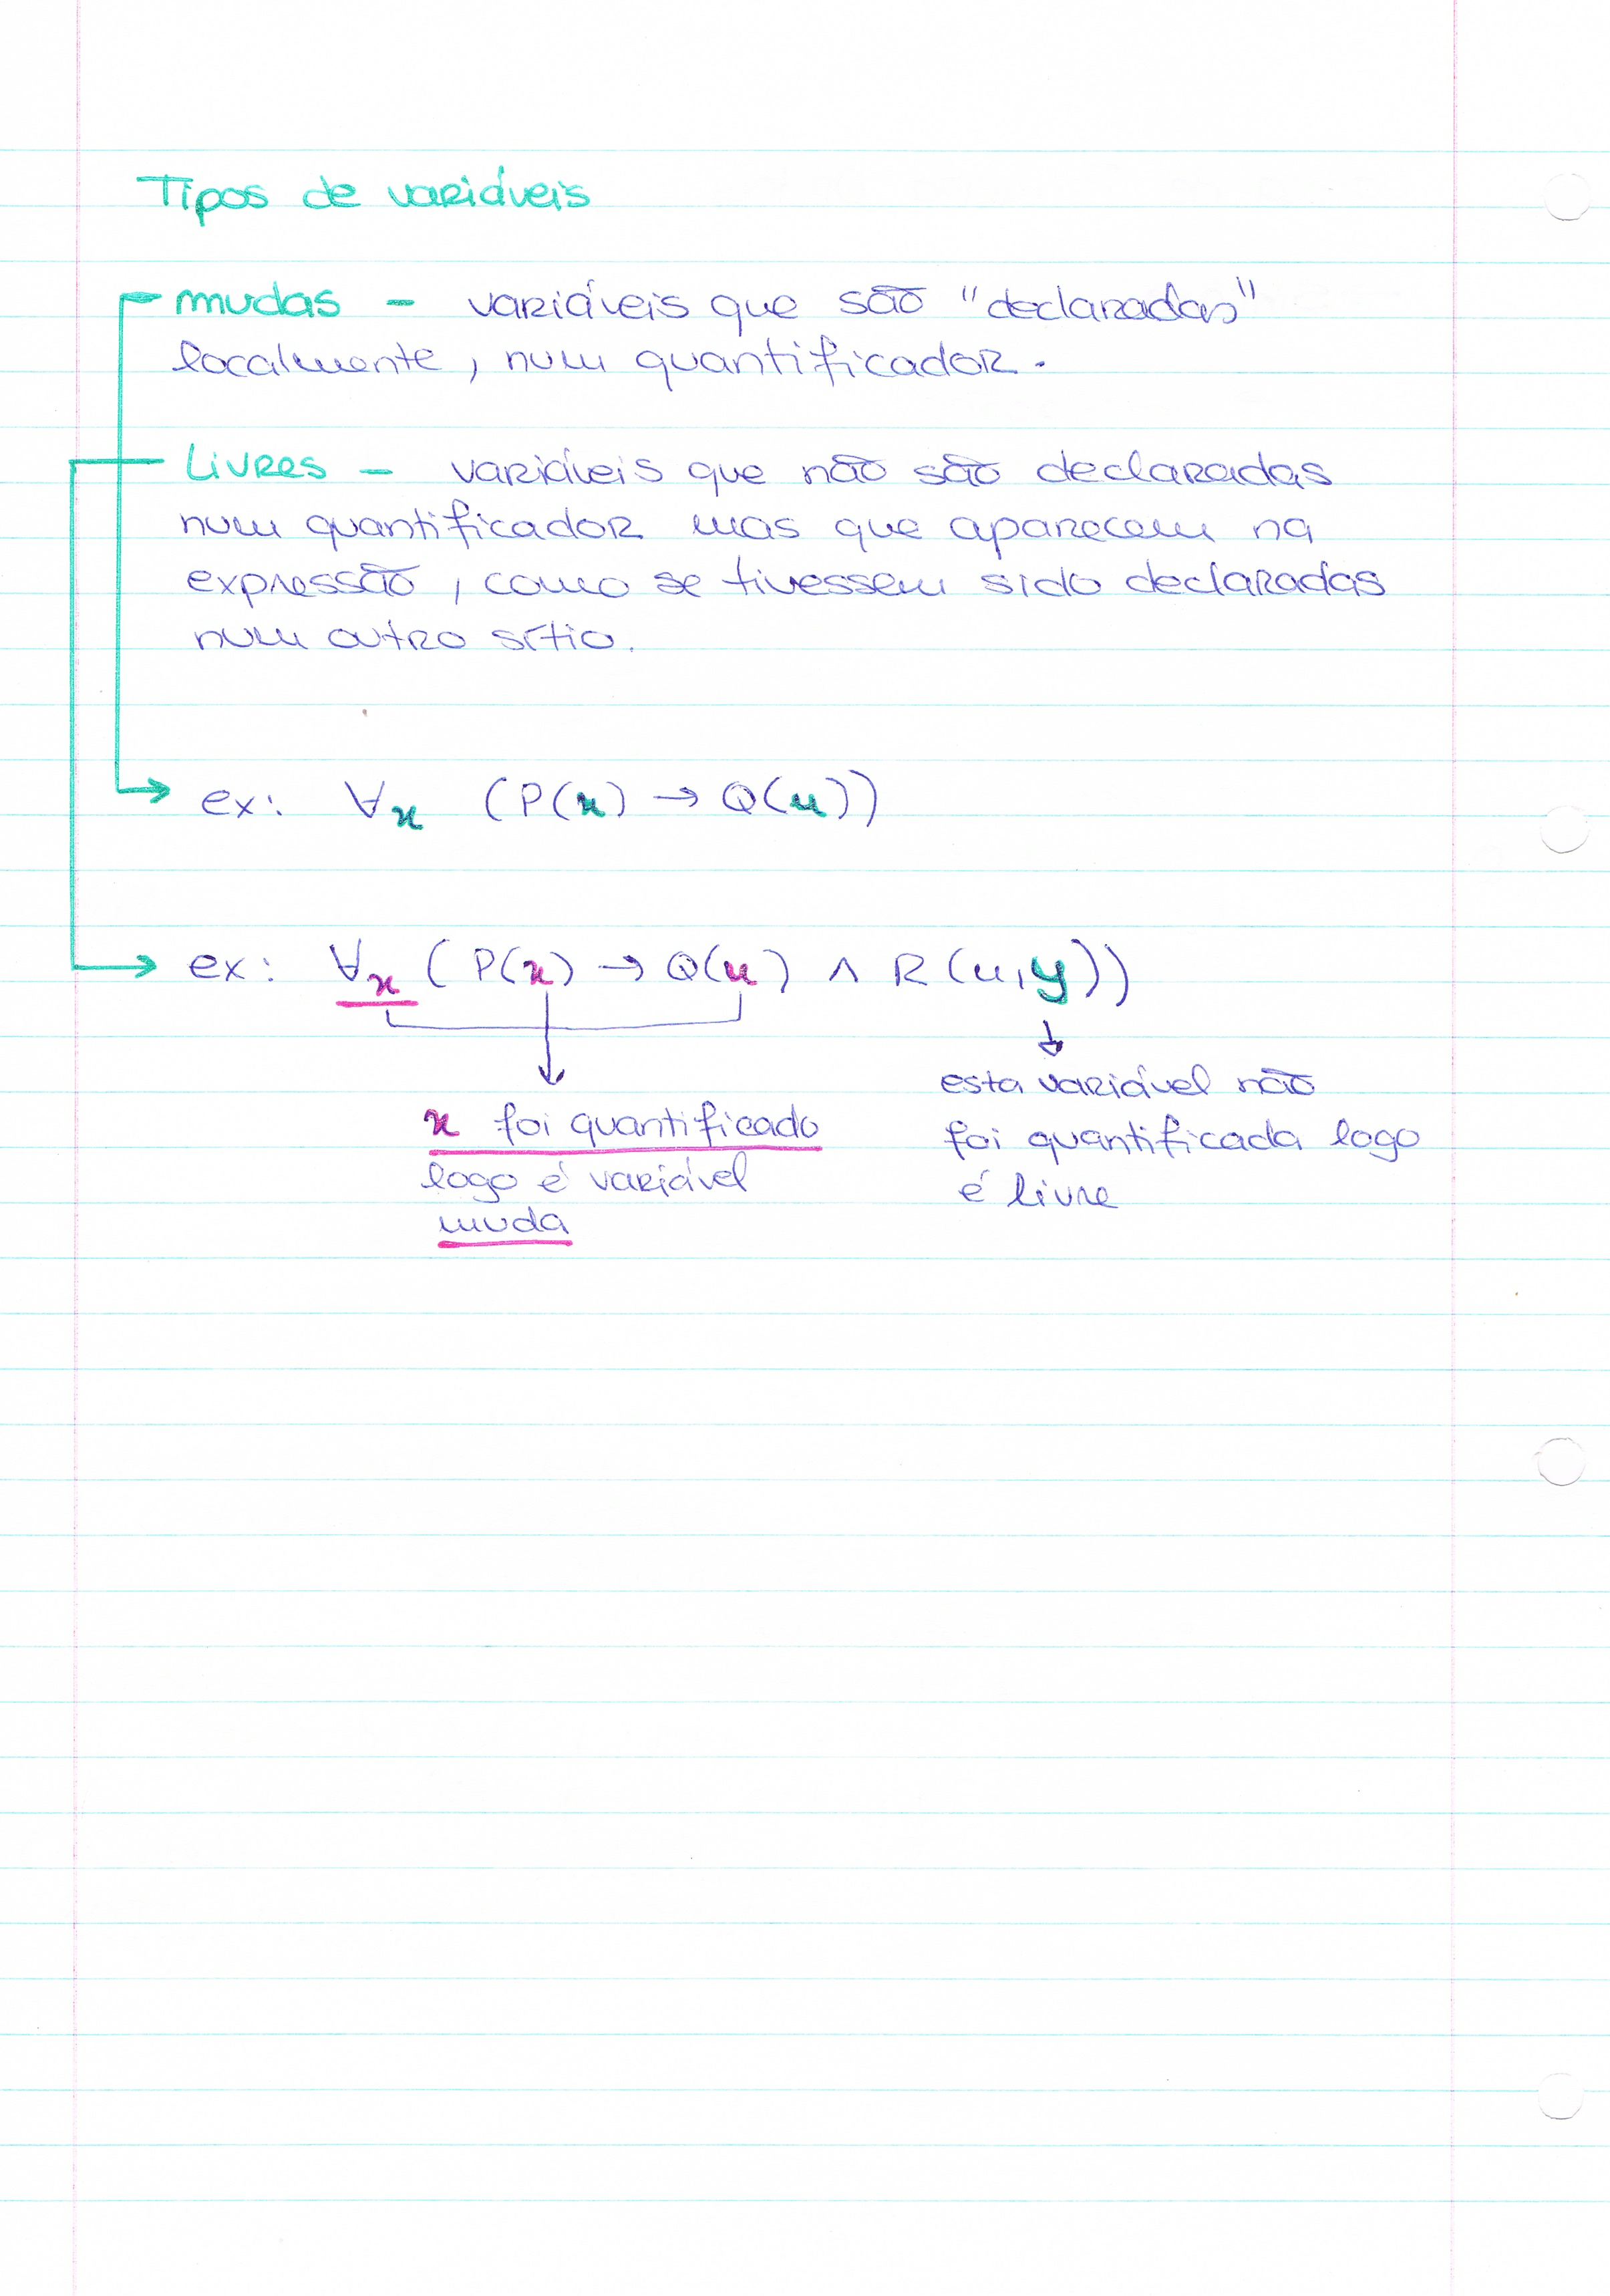 Tipos de variáveis
mudas - variáveis que são "declaradas"
localmente, num quantificador.
Livres - variáveis que não são declaradas
num quantificador mas que aparecem na
expressão, como se tivessem sido declaradas
num outro sítio.
ex: ∀x (P(x) → Q(x))
ex: ∀x (P(x) → Q(x) ∧ R(x,y))
x foi quantificado
logo é variável
muda
esta variável não
foi quantificada logo
é livre